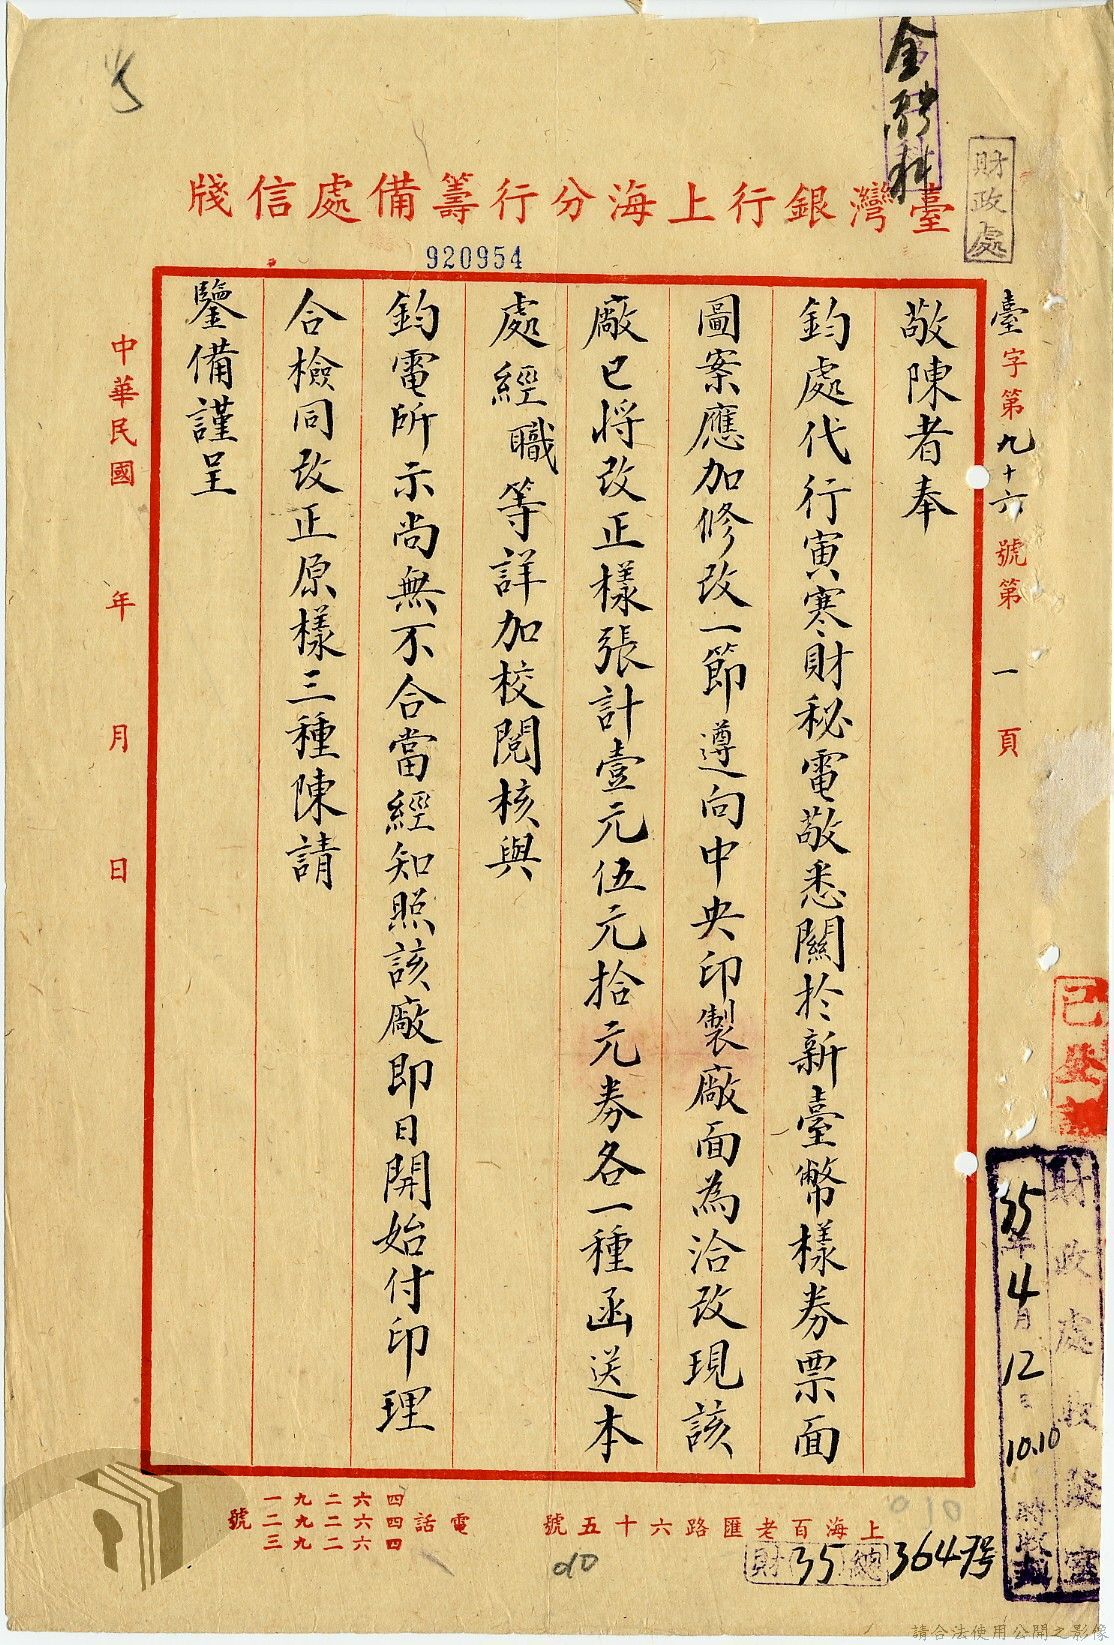 金融科
財政處
臺灣銀行上海分行籌備處信牋
920954
臺字第九十六號第一頁
敬陳者奉
鈞處代行寅寒財秘電敬悉關於新臺幣樣券票面
圖案應加修改一節遵向中央印製廠面為洽改現該
廠已將改正樣張計壹元伍元拾元券各一種函送本
處經職等詳加校閱核與
鈞電所示尚無不合當經知照該廠即日開始付印理
合檢同改正原樣三種陳請
鑒備謹呈
中華民國年月日
財政處收發室
35年4月12日
10.10時收到
上海百老匯路六十五號
電話
四四六二九一
四六六二九二
四六六二九三
號
財35總3647号
010
請合法使用公開之影像